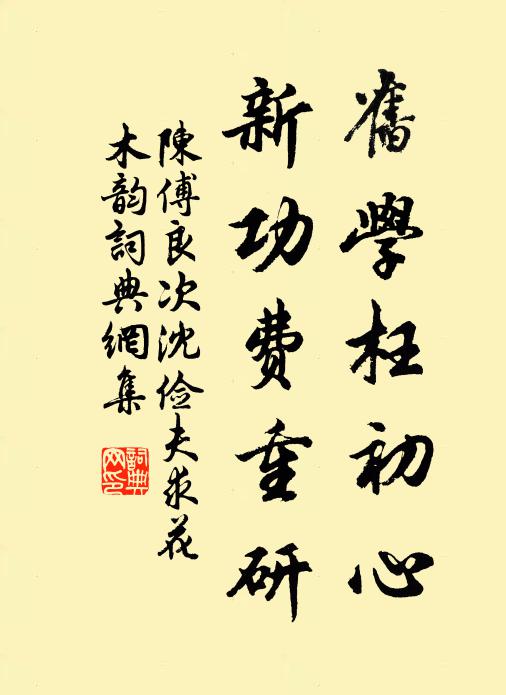 舊學枉初心
新功費重研
陳傅良次沈儉夫求花
木韵詞典網集
詞典
网印